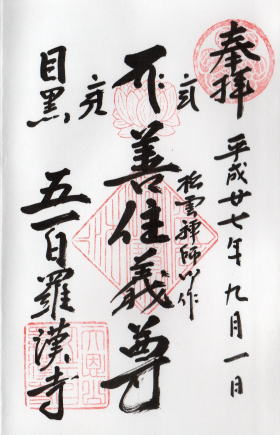 奉拝
平成廿七年九月一日
松雲禅師御作
善住義尊
目黒
五百羅漢寺